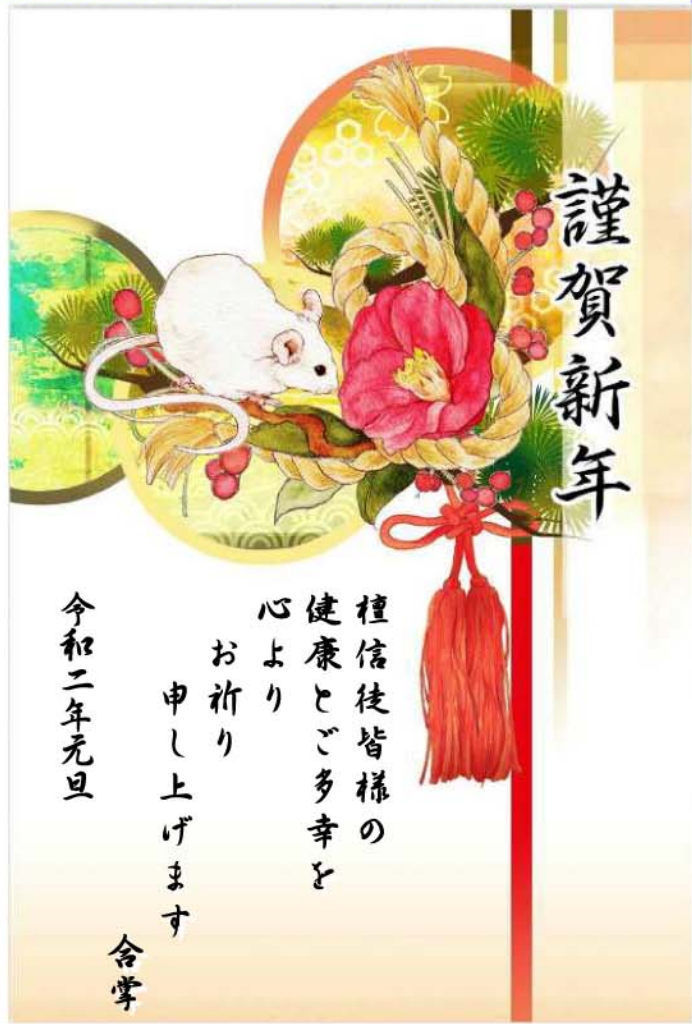 謹賀新年
檀信徒皆様の
健康とご多幸を
心より
お祈り
申し上げます
合掌
令和二年元旦